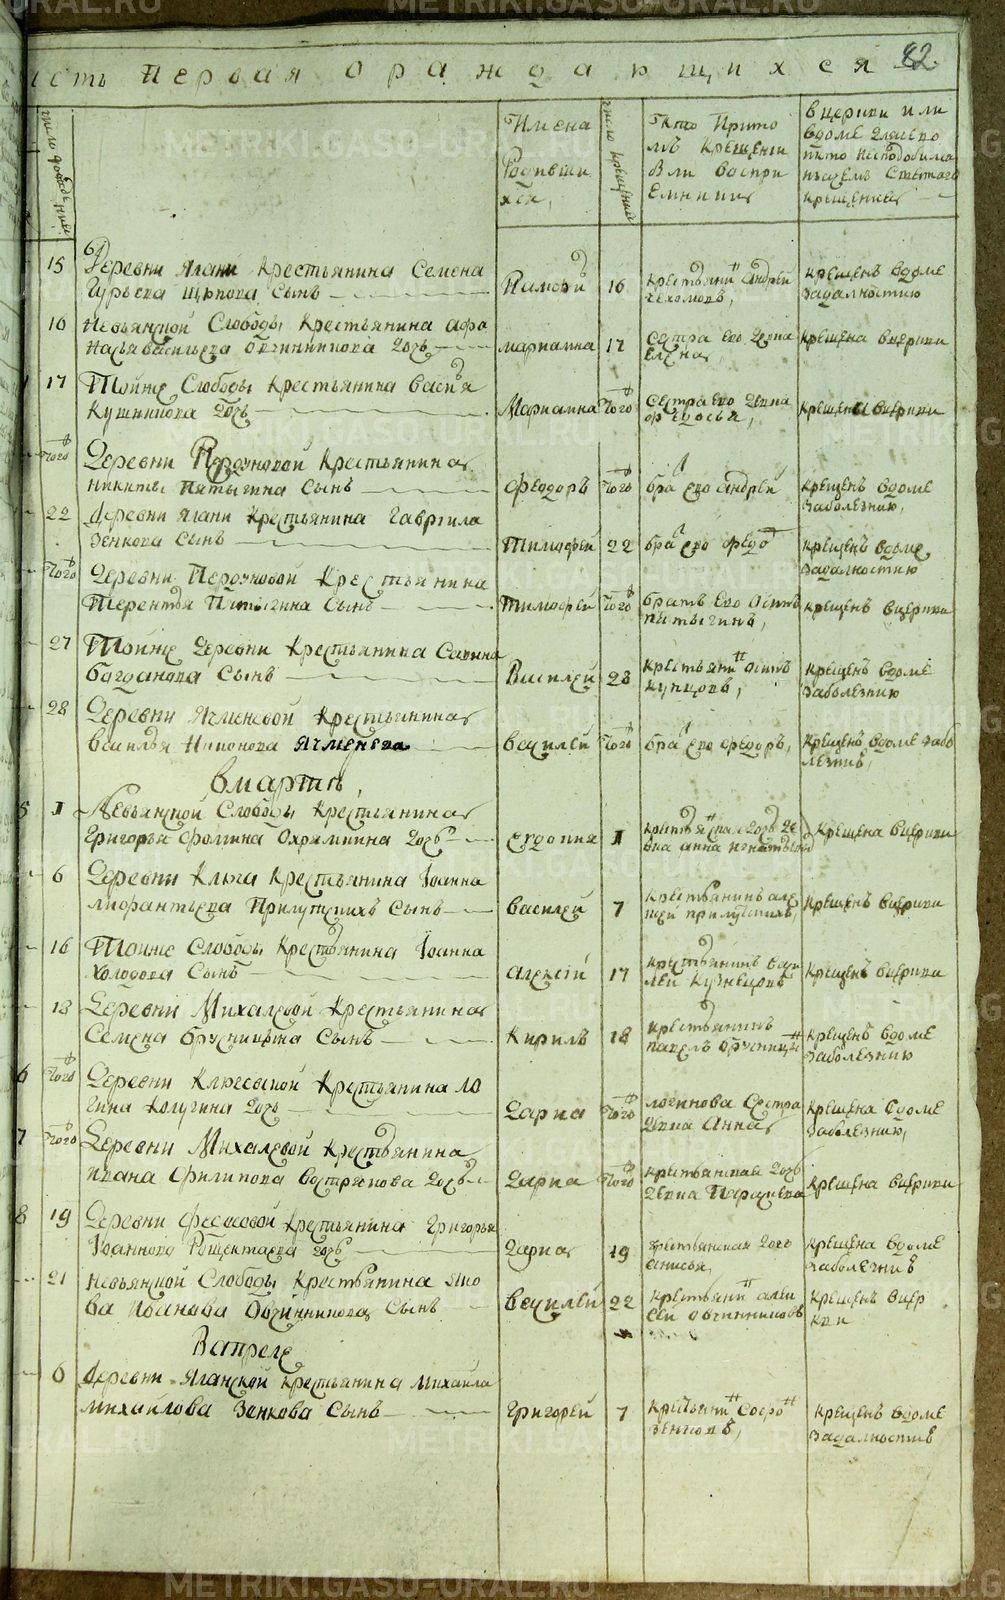 METRIKI.GASO-URAL.RU
сть первая о раждающихся
82
число рождения
Имена
Родивши
хся,
число крещения
Кто При то
мъ крещении
были воспри
емники
в церкви или
в доме
крещения
15 Деревни Ягани крестьянина Семена
Гурьева сынъ
16
крестьянин Андрей
крещенъ в доме
за далностию
16 Невьянской Слободы крестьянина Афа
насья Васильева Овчинникова дочь
Мариамна
17
сестра ево девка
Елена
крещена в церкви
17 Той же Слободы крестьянина Василья
Кушникова дочь
Мариамна
того
сестра ево девка
Федосья,
крещена в церкви
того Деревни Першуковой крестьянина
Никиты Пятыгина сынъ
Феодоръ
того
брат ево Андрей
крещенъ в доме
за болезнию,
22 Деревни Ягани крестьянина Гаврила
Зенкова сынъ
Тимофей
22
брат ево Федот
крещенъ в доме,
за далностию
того Деревни Першуковой крестьянина
Терентья Пятыгина сынъ
Тимофей
того
братъ ево Осипъ
Пятыгинъ,
крещенъ в церкви
27 Той же деревни крестьянина Савина
Багданова сынъ
Василей
28
крестьянин Осипъ
Купцовъ,
крещенъ в доме
за болезнию
28 Деревни Ячменевой крестьянина
Василья Никонова Ячменева
Василей
того
брат ево Федоръ,
крещенъ в доме за бо
лезнию,
в марте,
5 1 Невьянской Слободы крестьянина
Григорья Фомина Охрямкина дочь
Евдокия
1
крестьянская дочь де
вка Анна Игнатьева
крещена в церкви
6 Деревни Ключа крестьянина Иоанна
Прилуцкихъ сынъ
Василей
7
крестьянинъ Алек
сей Прилуцкихъ,
крещенъ в церкви
16 Той же Слободы крестьянина Иоанна
Холодова сынъ
Алексей
17
крестьянинъ Васи
лей Кузнецовъ
крещенъ в церкви
18 Деревни Михалевой крестьянина
Семена Брусницына сынъ
Кирилъ
18
крестьянинъ
Павелъ Брусницын
крещенъ в доме
за болезнию
6 того Деревни Ключевской крестьянина Ло
гина Колугина дочь
Дариа
того
Логинова сестра
девка Анна
крещена в доме
за болезнию,
7 того Деревни Михалевой крестьянина
Ивана Филипова Вострякова дочь
Дариа
того
крестьянская дочь
девка Парасковья
крещена в церкви
8 19 Деревни крестьянина Григорья
Иоаннова дочь
Дариа
19
крестьянская дочь
Анисья,
крещена в доме
за болезнию
21 Невьянской Слободы крестьянина Яко
ва Иоанова Овчинникова сынъ
Василей
22
крестьянин Алек
сей Овчинниковъ
крещенъ в цер
кви
В апреле
6 Деревни Яганской крестьянина Михайла
Михайлова Зенкова сынъ
Григорей
7
крестьянин Софрон
Зенковъ,
крещенъ в доме
за далностию